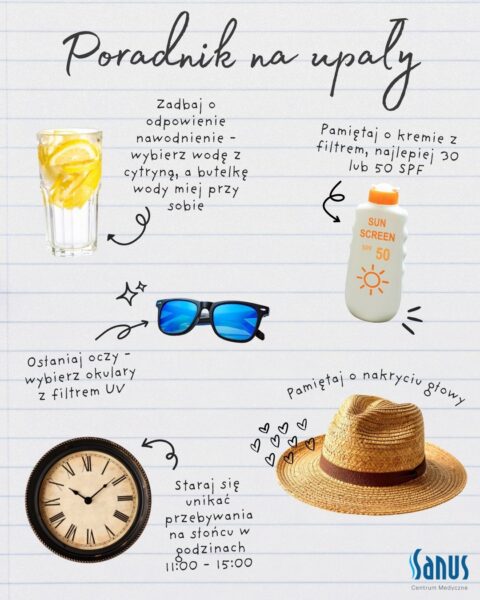 Poradnik na upały
Zadbaj o
odpowienie
nawodnienie -
wybierz wodę z
cytryną, a butelkę
wody miej przy
sobie
Pamiętaj o kremie z
filtrem, najlepiej 30
lub 50 SPF
SUN
SCREEN
SPF 50
Osłaniaj oczy -
wybierz okulary
z filtrem UV
Pamiętaj o nakryciu głowy
XII
I
II
III
IIII
V
VI
VII
VIII
IX
X
XI
Staraj się
unikać
przebywania
na słońcu w
godzinach
11:00 - 15:00
Sanus
Centrum Medyczne